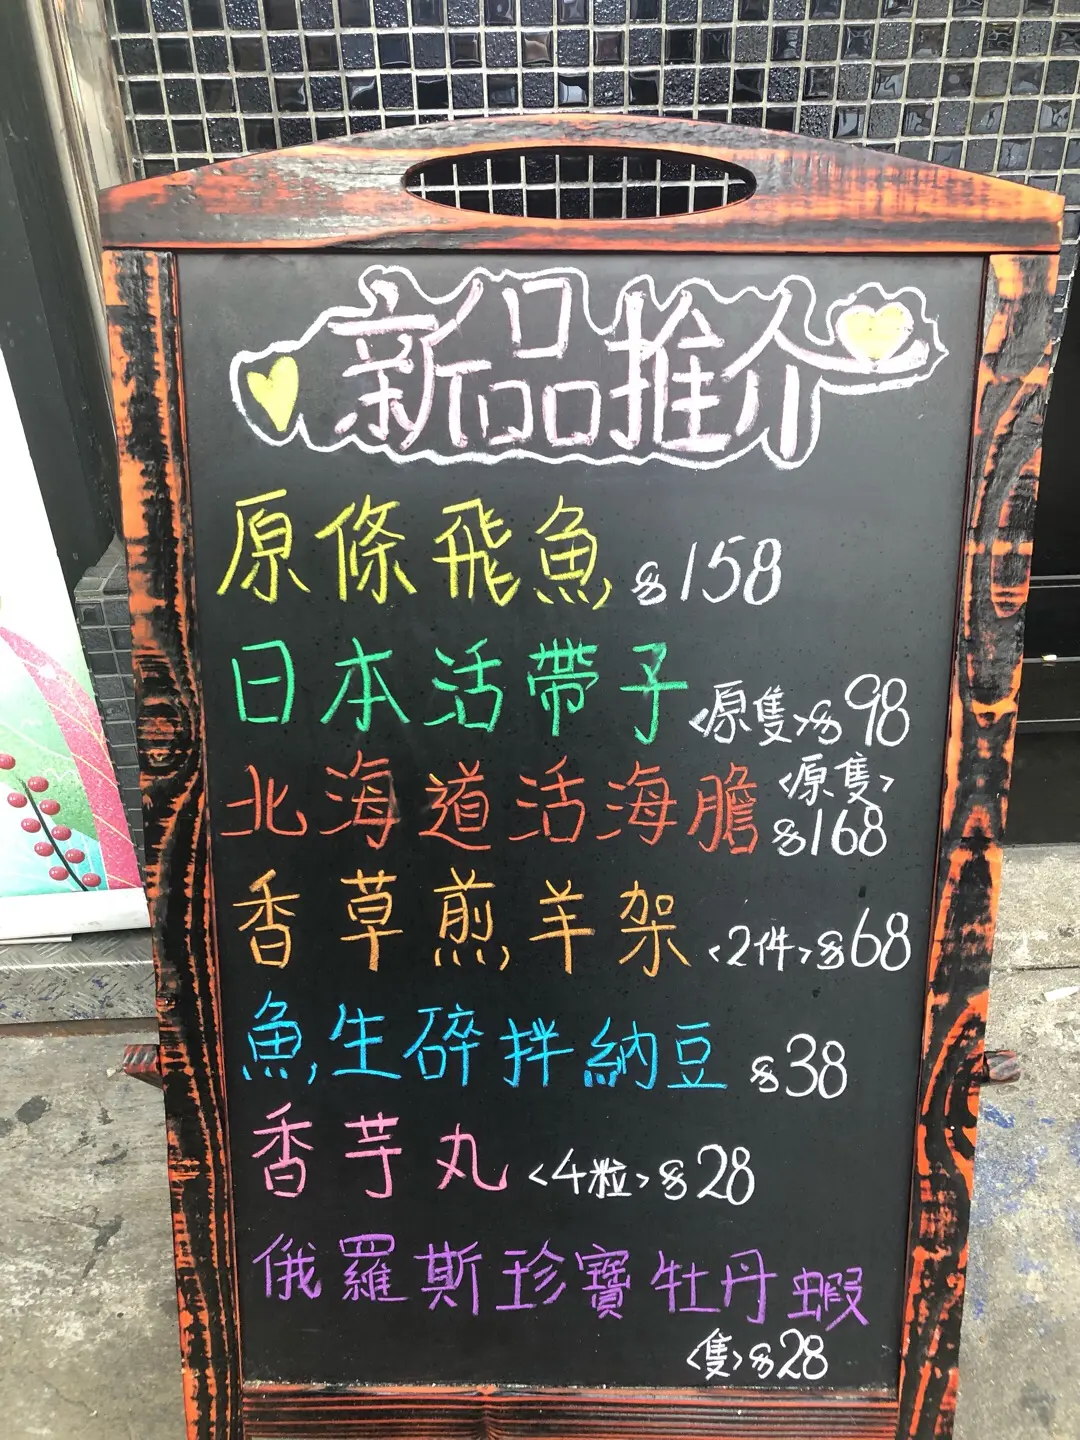 新品推介
原條飛魚 $158
日本活帶子 <原隻> $98
北海道活海膽 <原隻> $168
香草煎羊架 <2件> $68
魚生碎拌納豆 $38
香芋丸 <4粒> $28
俄羅斯珍寶牡丹蝦
<隻> $28